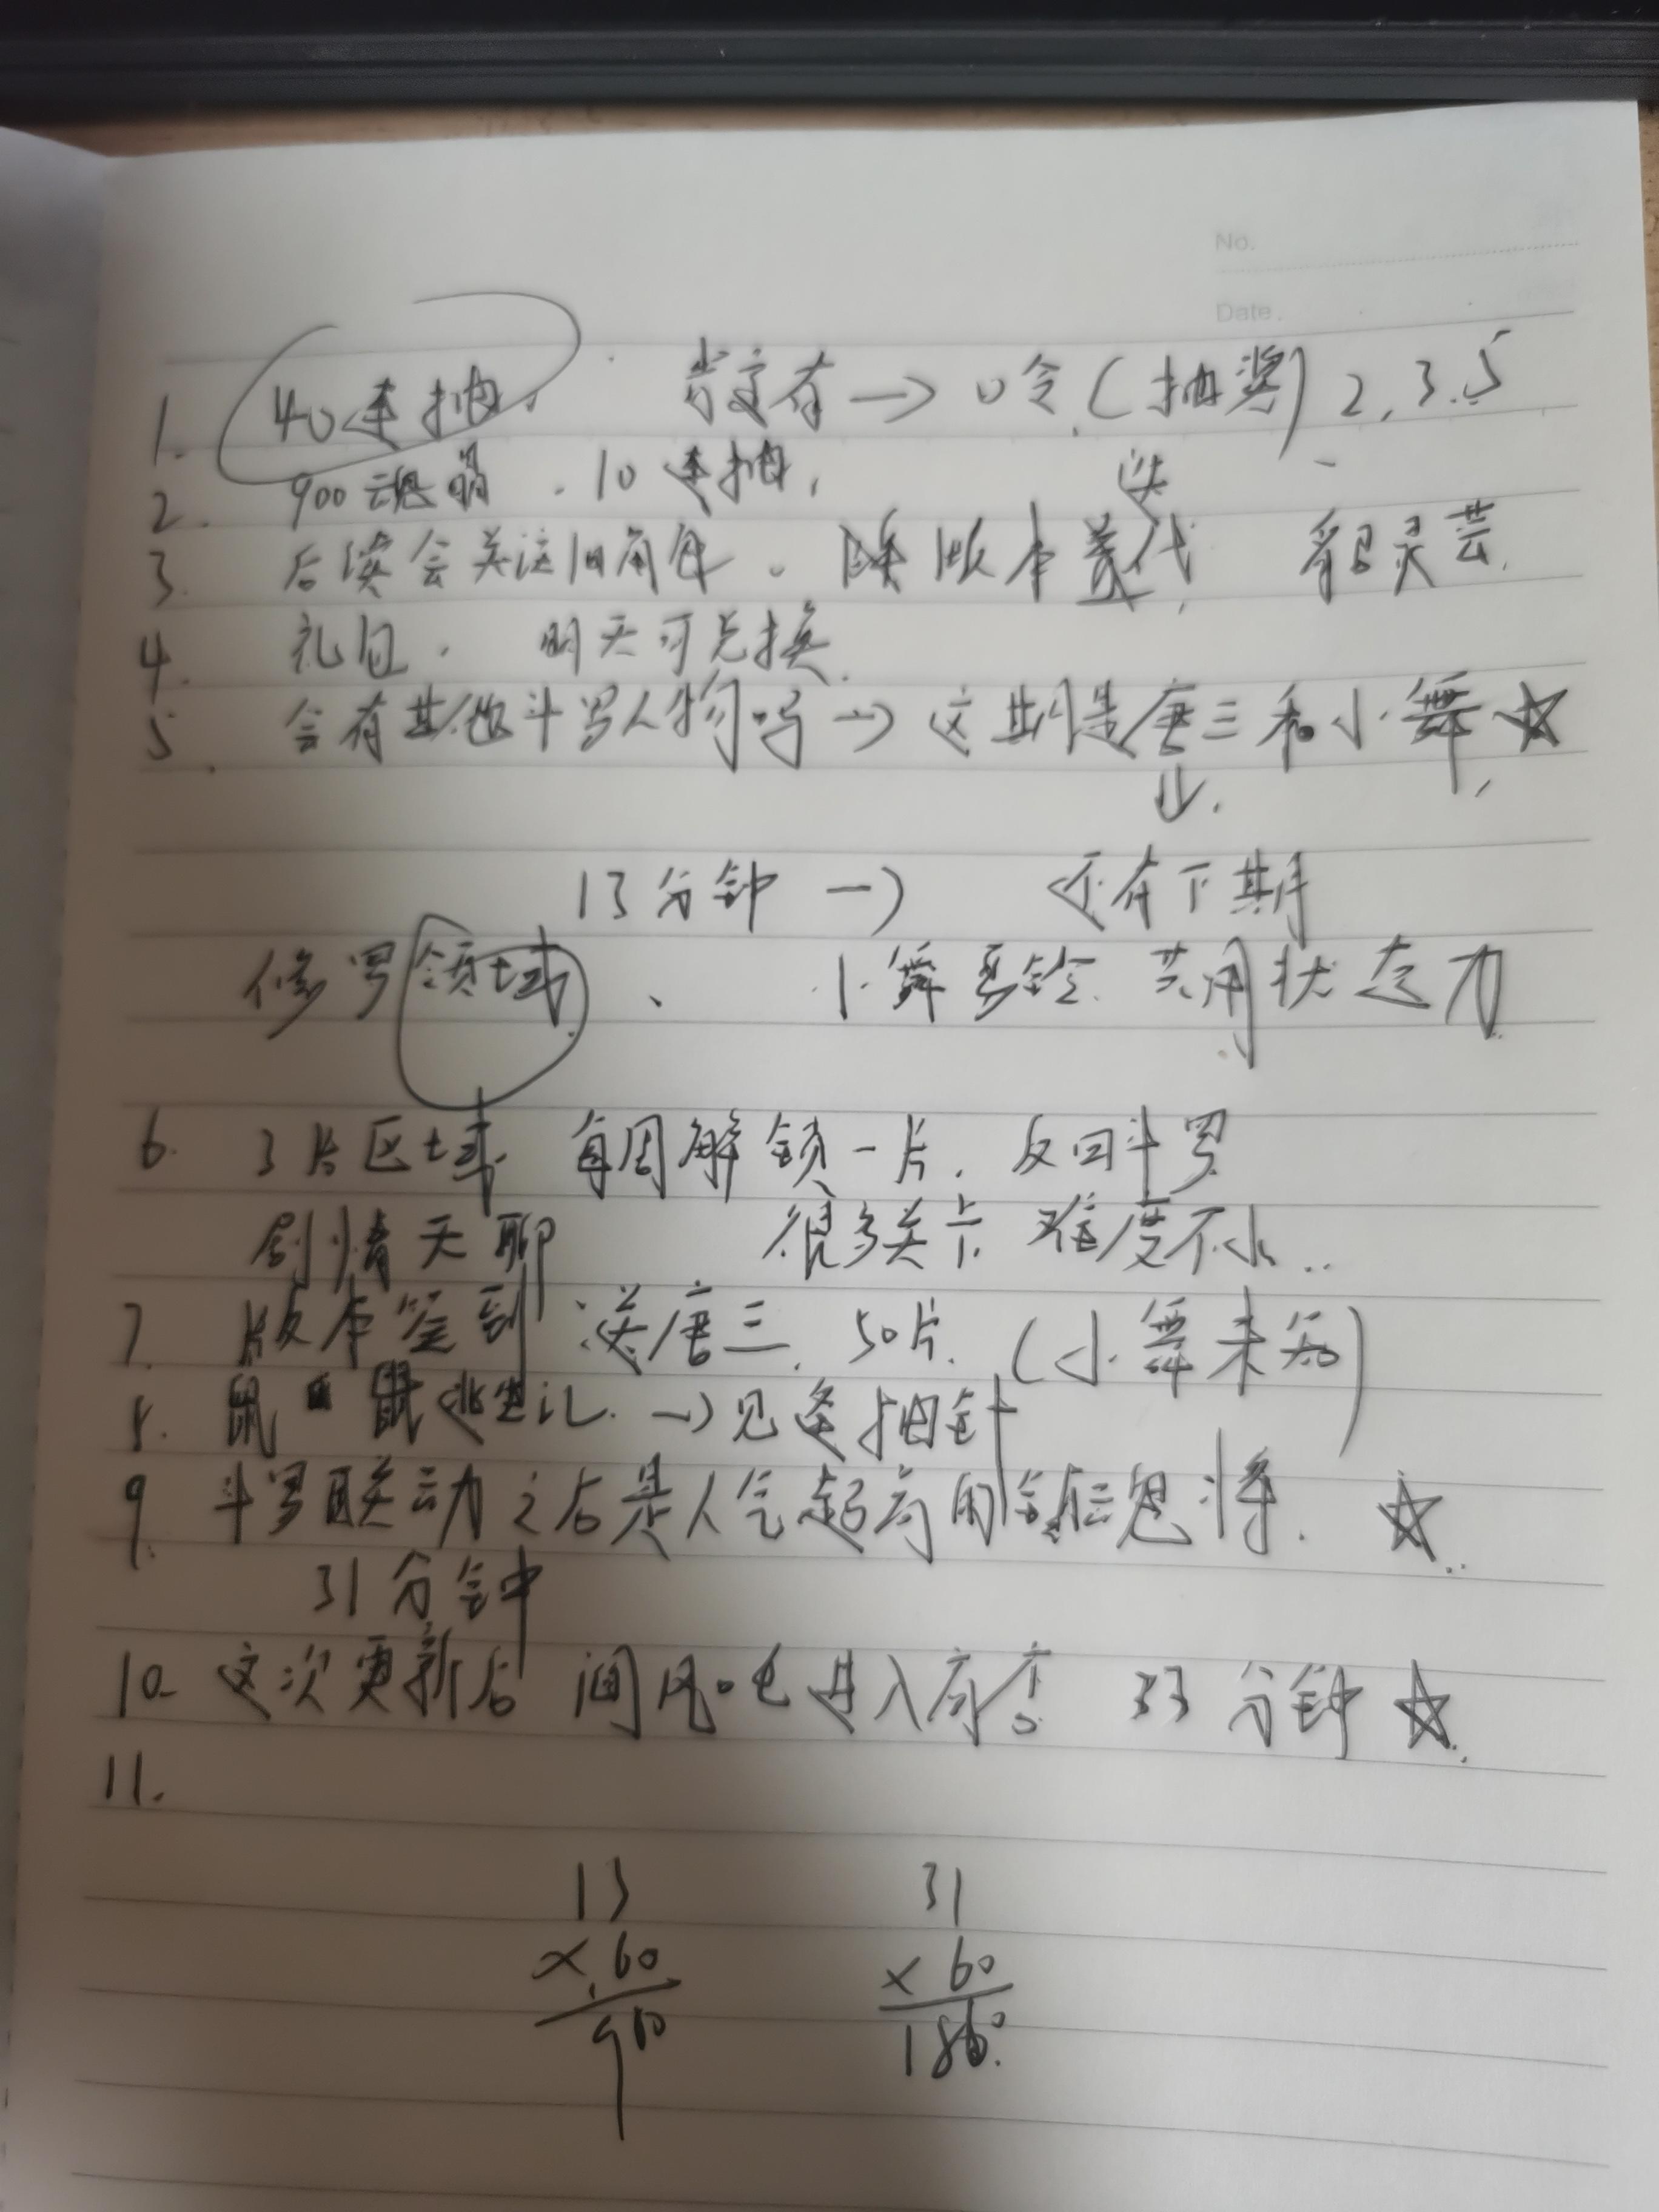 No.
Date.
1. 40连抽. 肯定有→口令(抽奖) 2,3.5
2. 900魂晶. 10连抽,
送
3. 后续会关注旧角色。 版本 代
4. 礼包. 明天可兑换.
5. 会有其他斗罗人物吗→这期是唐三和小舞,☆
↓.
13分钟→ 还有下期
修罗领域、 小舞 共用状态力
6. 3片区域 每周解锁一片. 反回斗罗
剧情无聊 很多关卡 难度不小..
7. 版本签到 送唐三. 50片. (小舞未知)
8. 鼠 逃 → 抽针
9. 斗罗联动之后是人气超高的 魂将. ☆..
31分钟
10. 这次更新后 进入商店 33分钟☆.
11.
13 31
×.60 ×60
910 1860.